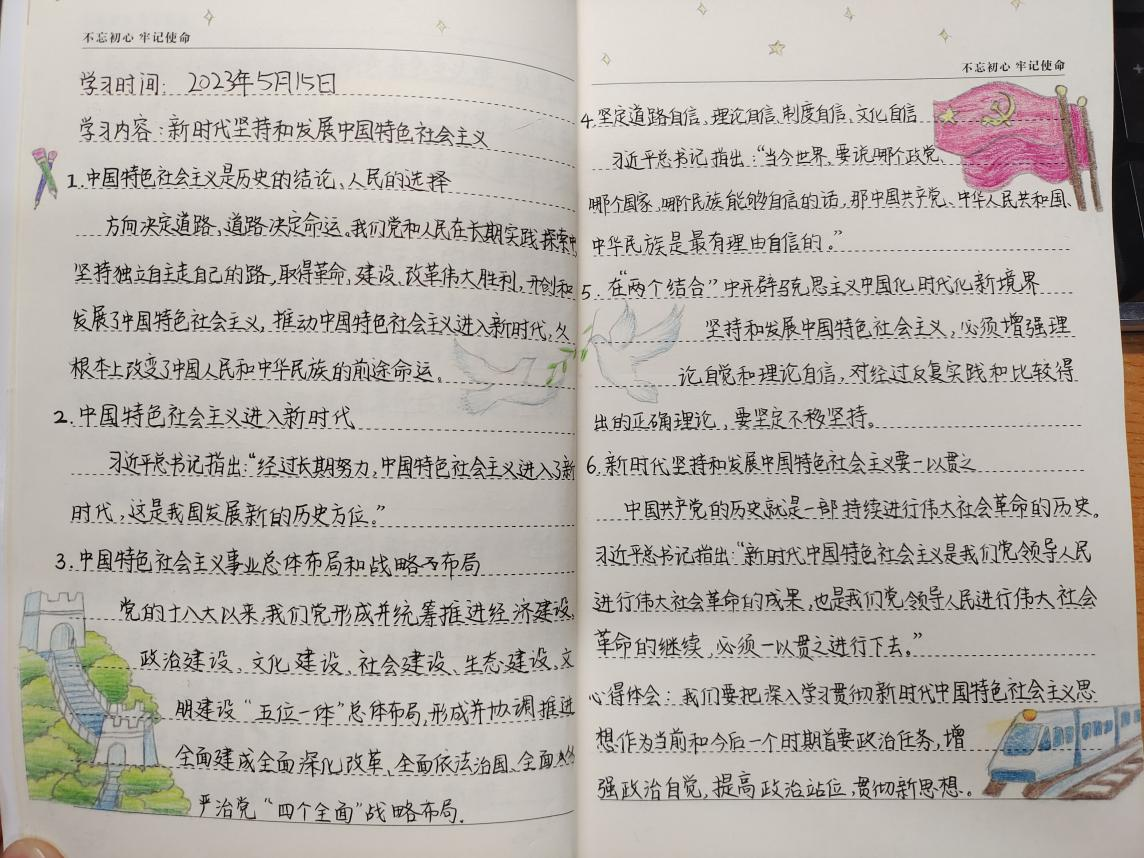 不忘初心 牢记使命
学习时间：2023年5月15日
学习内容：新时代坚持和发展中国特色社会主义
1.中国特色社会主义是历史的结论、人民的选择
方向决定道路，道路决定命运。我们党和人民在长期实践探索中
坚持独立自主走自己的路，取得革命，建设、改革伟大胜利，开创和
发展了中国特色社会主义，推动中国特色社会主义进入新时代，
根本上改变了中国人民和中华民族的前途命运。
2.中国特色社会主义进入新时代
习近平总书记指出：“经过长期努力，中国特色社会主义进入了新
时代，这是我国发展新的历史方位。”
3.中国特色社会主义事业总体布局和战略布局
党的十八大以来，我们党形成并统筹推进经济建设，
政治建设，文化建设，社会建设、生态建设，文
明建设“五位一体”总体布局，形成并协调推进
全面建成全面深化改革、全面依法治国、全面
严治党“四个全面”战略布局.
不忘初心 牢记使命
4.坚定道路自信、理论自信、制度自信、文化自信
习近平总书记指出：“当今世界，要说哪个政党、
哪个国家，哪个民族能够自信的话，那中国共产党、中华人民共和国、
中华民族是最有理由自信的。”
5.在“两个结合”中开辟马克思主义中国化时代化新境界
坚持和发展中国特色社会主义，必须增强理
论自觉和理论自信，对经过反复实践和比较得
出的正确理论，要坚定不移坚持。
6.新时代坚持和发展中国特色社会主义要一以贯之
中国共产党的历史就是一部持续进行伟大社会革命的历史。
习近平总书记指出：“新时代中国特色社会主义是我们党领导人民
进行伟大社会革命的成果，也是我们党领导人民进行伟大社会
革命的继续，必须一以贯之进行下去。”
心得体会：我们要把深入学习贯彻新时代中国特色社会主义思
想作为当前和今后一个时期首要政治任务，增
强政治自觉，提高政治站位，贯彻新思想.。